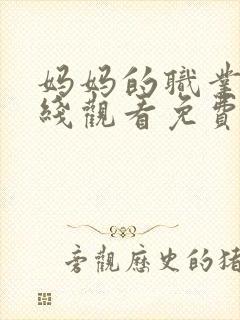 媽媽的職業
綫觀看免費
旁觀歷史的猪